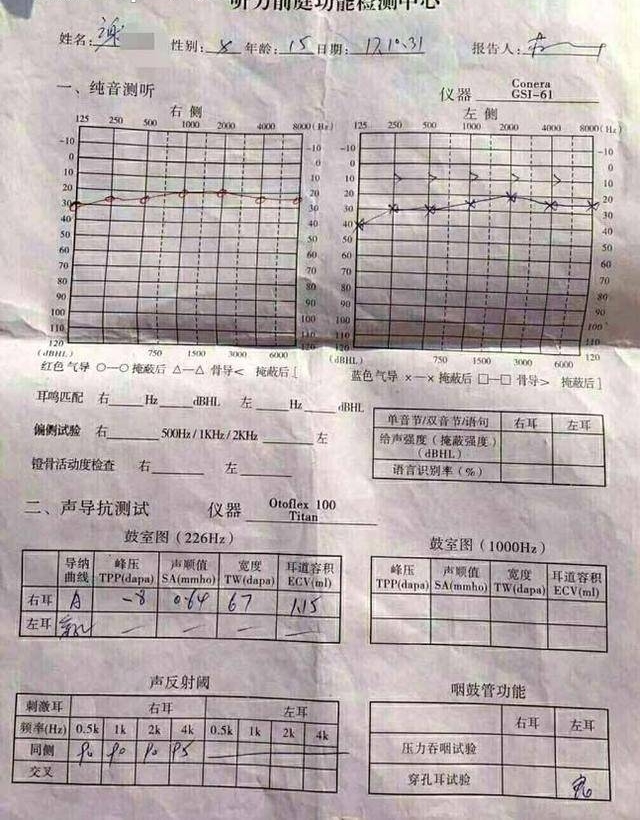 听力前庭功能检测中心
姓名: 谢 性别: 年龄: 15 日期: 17.10.31 报告人:
一、纯音测听 仪器 Conera GSI-61
右侧 左侧
125 250 500 1000 2000 4000 8000(Hz) 125 250 500 1000 2000 4000 8000(Hz)
-10 -10 -10 -10
0 0 0 0
10 10 10 10
20 20 20 20
30 30 30 30
40 40 40 40
50 50 50 50
60 60 60 60
70 70 70 70
80 80 80 80
90 90 90 90
100 100 100 100
110 110 110 110
120 120 120 120
(dBHL) 750 1500 3000 6000 (dBHL) 750 1500 3000 6000
红色 气导 ○—○ 掩蔽后 △—△ 骨导< 掩蔽后[ 蓝色 气导 ×—× 掩蔽后 □—□ 骨导> 掩蔽后]
耳鸣匹配 右 Hz dBHL 左 Hz dBHL
偏侧试验 右 500Hz/1KHz/2KHz 左
镫骨活动度检查 右 左
单音节/双音节/语句 右耳 左耳
给声强度(掩蔽强度)
(dBHL)
语言识别率(%)
二、声导抗测试 仪器 Otoflex 100 Titan
鼓室图(226Hz) 鼓室图(1000Hz)
导纳曲线 峰压TPP(dapa) 声顺值SA(mmho) 宽度TW(dapa) 耳道容积ECV(ml)
右耳 A -8 0.64 67 1.15
左耳 — — — —
峰压TPP(dapa) 声顺值SA(mmho) 宽度TW(dapa) 耳道容积ECV(ml)
声反射阈 咽鼓管功能
刺激耳 右耳 左耳
频率(Hz) 0.5k 1k 2k 4k 0.5k 1k 2k 4k
同侧
交叉
右耳 左耳
压力吞咽试验
穿孔耳试验